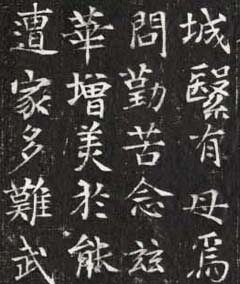 城緊有母焉
問勤苦念茲
華增美於能
遭家多難武